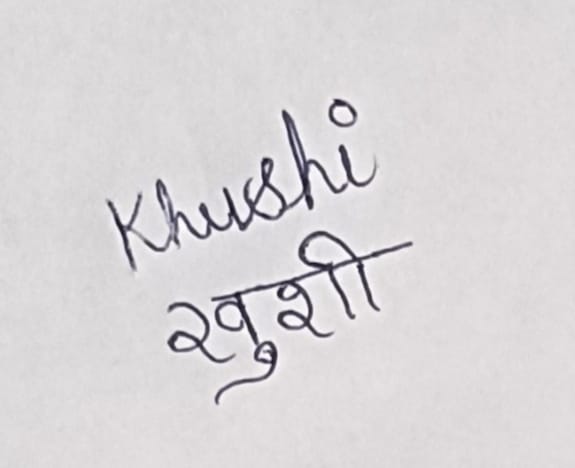 Khushi
खुशी